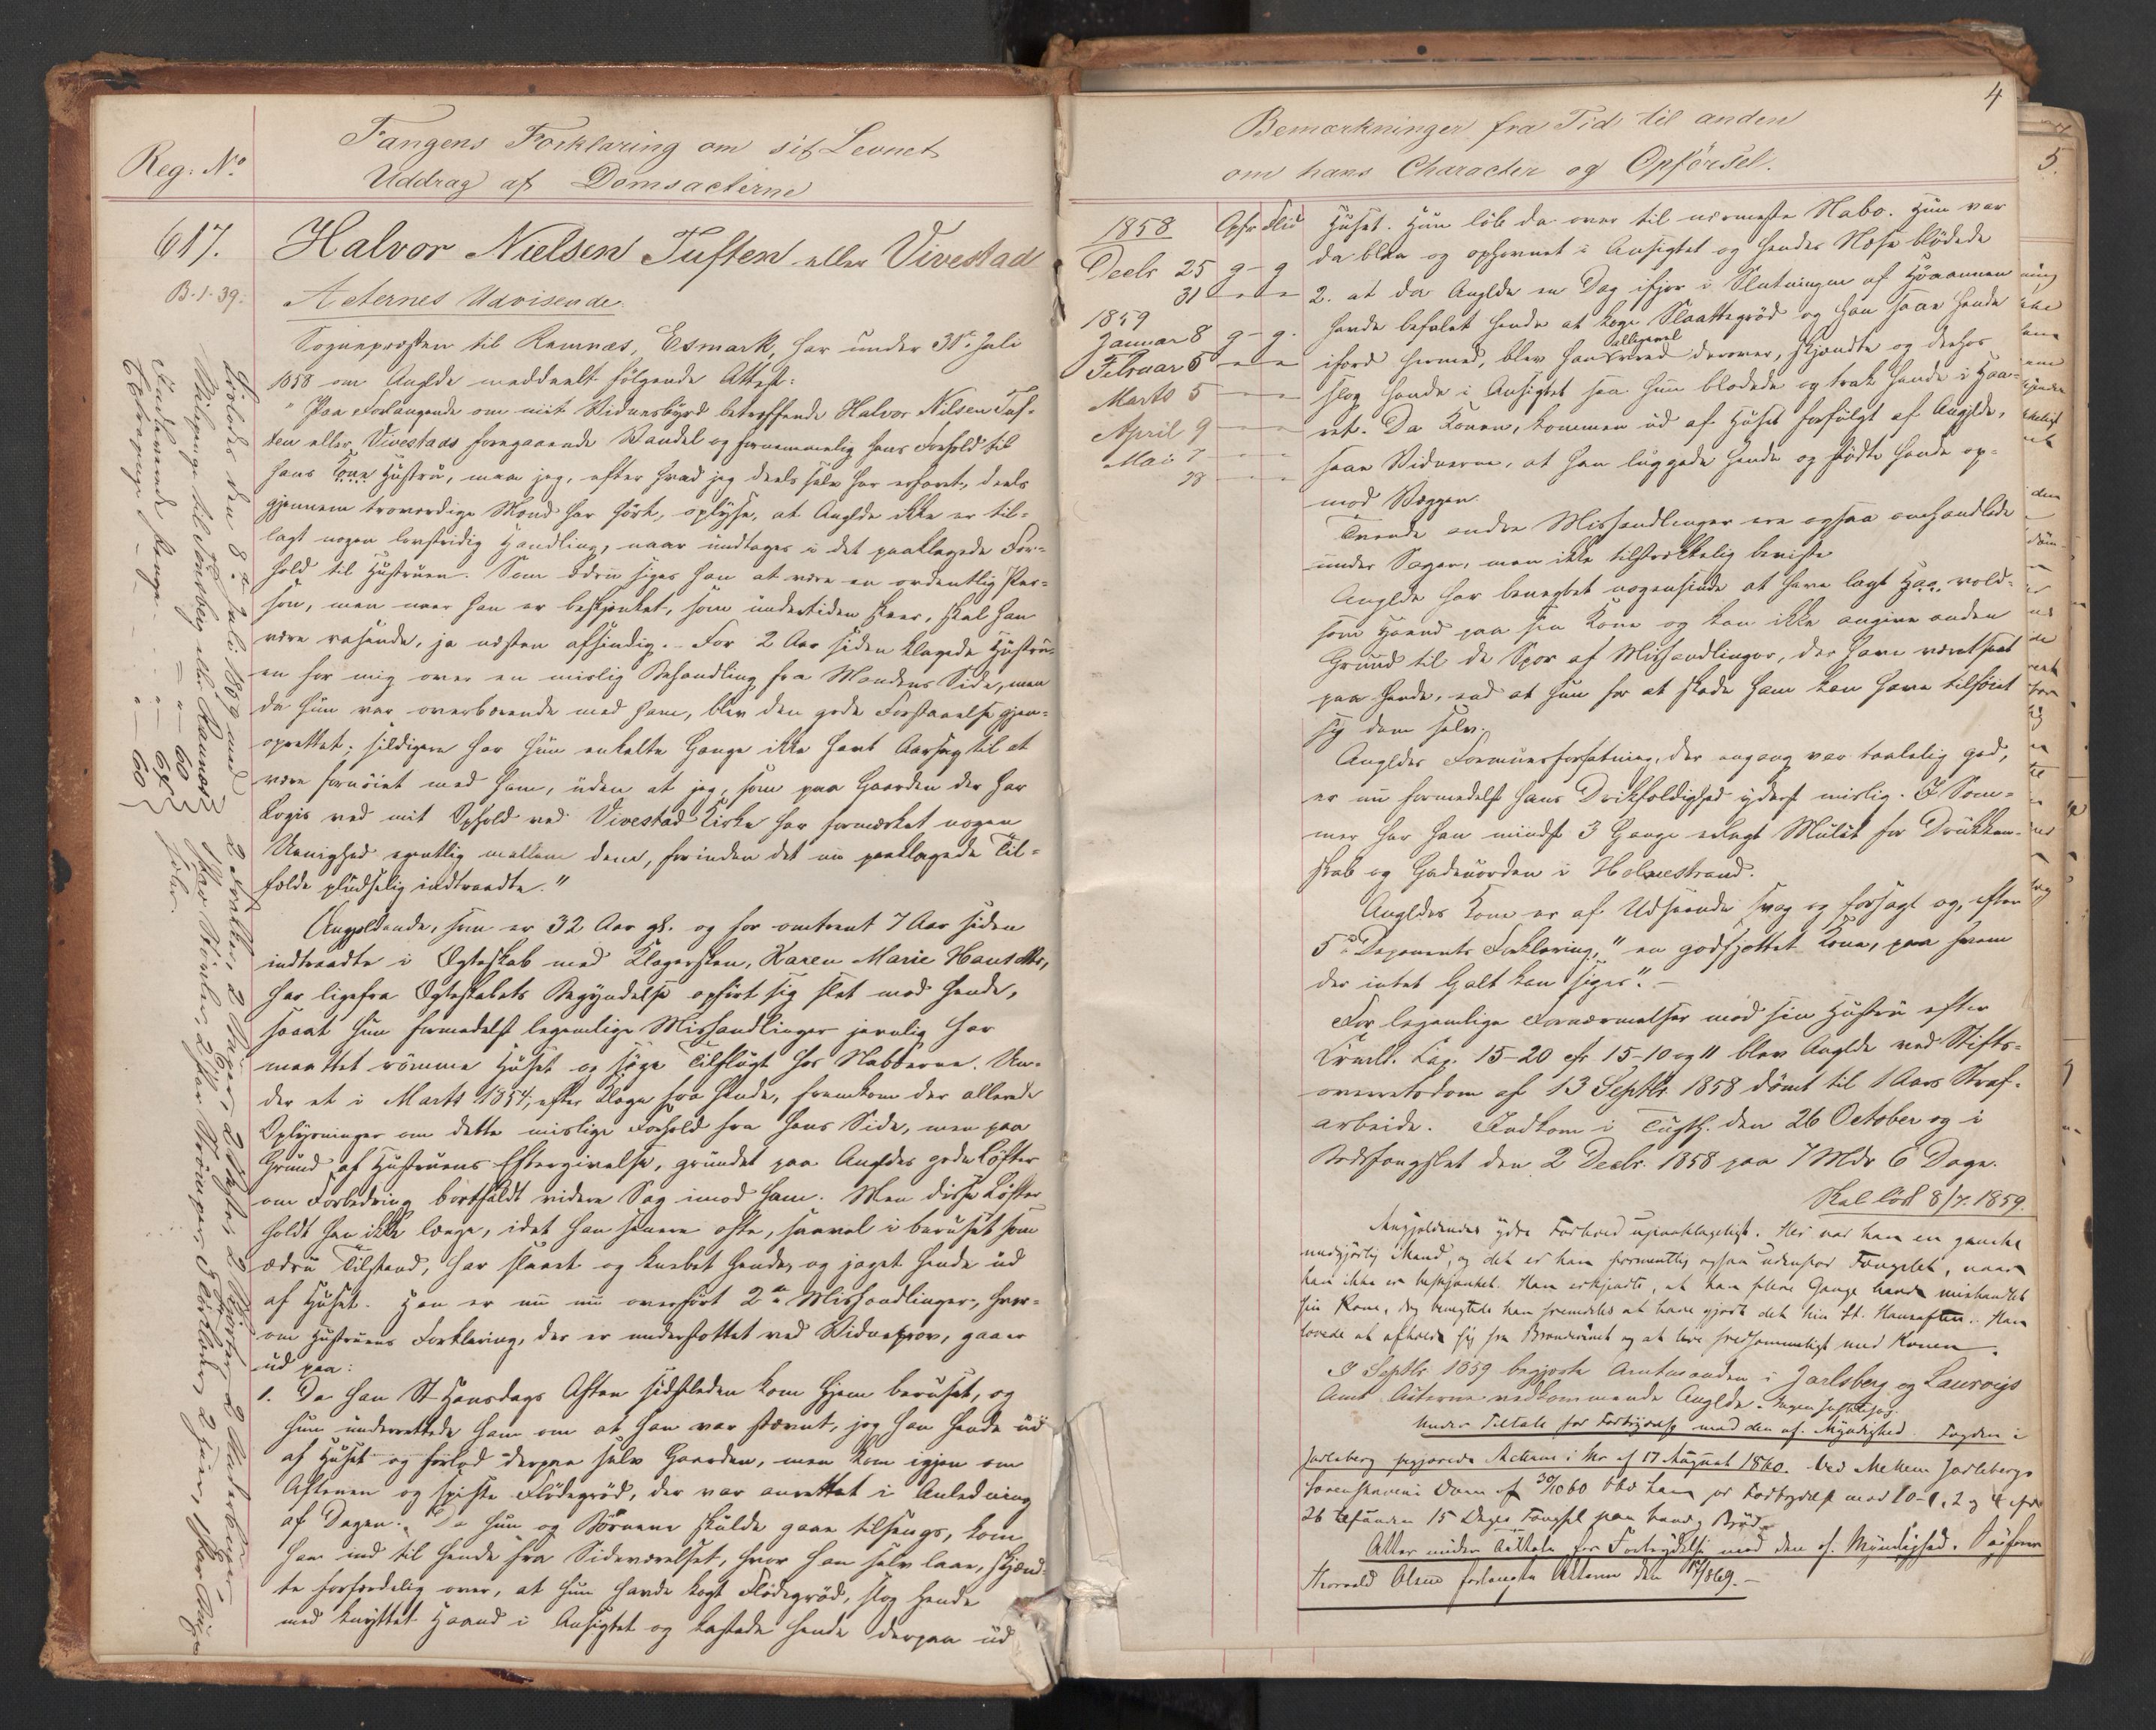 Reg: No
Fangens Forklaring om sit Levnet
Uddrag af Domsacterne
617.
B. 1. 39.
Halvor Nielsen Tuften eller Vivestad
Acternes Udvisende.
Sognepræsten til Ramnæs, Esmark, har under 31te Juli
1858 om Anglde meddeelt følgende Attest:
"Paa Forlangende om mit Vidnesbyrd betræffende Halvor Nilsen Tuf-
ten eller Vivestads foregaaende Vandel og fornemmelig hans Forhold til
hans Kone Hustru, maa jeg, efter hvad jeg deels selv har erfaret, deels
gjennem troværdige Mænd har hørt, oplyse, at Anglde ikke er til-
lagt nogen lovstridig Handling, naar undtages i det paaklagede For-
hold til Hustruen. Som ædru siges han at være en ordentlig Per-
son, men naar han er beskjænket, som undertiden skeer, skal han
være rasende, ja næsten afsindig. For 2 Aar siden klagede Hustru-
en for mig over en mislig Behandling fra Mandens Side, men
da hun var overbærende med ham, blev den gode Forstaaelse gjen-
oprettet; sildigere har hun enkelte Gange ikke havt Aarsag til at
være fornøiet med ham, uden at jeg, som paa Gaarden der har
Logis ved mit Ophold ved Vivestad Kirke har formærket nogen
Uenighed egentlig mellem dem, forinden det nu paaklagede Til-
fælde pludselig indtraadte."
Angjældende, som er 32 Aar gl. og for omtrent 7 Aar siden
indtraadte i Ægteskab med Klagersken, Karen Marie Hansdtr,
har ligefra Ægteskabets Begyndelse opført sig slet mod hende,
saaat hun formedelst legemlige Mishandlinger jevnlig har
maattet rømme Huset og søge Tilflugt hos Naboerne. Un-
der et i Marts 1854, efter Klage fra hende, fremkom der allerede
Oplysninger om dette mislige Forhold fra hans Side, men paa
Grund af Hustruens Eftergivelse, grundet paa Angldes gode Løfter
om Forbedring bortfaldt videre Sag imod ham. Men disse Løfter
holdt han ikke længe, idet han senere ofte, saavel i beruset som
ædru Tilstand, har slaaet og knubet hende og jaget hende ud
af Huset. Han er nu nu overført 2de Mishandlinger, hvor-
om Hustruens Forklaring, der er understøttet ved Vidneprov, gaaer
ud paa:
1. Da han St Hansdags Aften sidstleden kom hjem beruset, og
hun underrettede ham om at han var stævnet, jog han hende ud
af Huset og forlod derpaa selv Gaarden, men kom igjen om
Aftenen og spiste Flødegrød, der var anrettet i Anledning
af Dagen. Da hun og Børnene skulde gaae tilsengs, kom
han ind til hende fra Sideværelset, hvor han selv laae, skjænd-
te forfærdelig over, at hun havde kogt Flødegrød, slog hende
med knyttet Haand i Ansigtet og kastede hende derpaa ud
Løslodes den 8de Juli 1859 med
Reisepenge til Tønsberg eller Ramnæs
Indtjente Penge - - - 68
Extrapenge - - - 60
4
Bemærkninger fra Tid til anden
om hans Character og Opførsel.
1858 Opfr Flid
Decbr 25 g - g
31 - - -
1859
Januar 8 g - g.
Februar 5 - - -
Marts 5 - - -
April 9 - - -
Mai 7 - - -
28 - - -
Huset. Hun løb da over til nærmeste Nabo. Hun var
da blaa og ophovnet i Ansigtet og hendes Næse blødede
2. at da Anglde en Dag ifjor i Slutningen af Høaannen
havde befalet hende at koge Slaattegrød og han saae hende
ifærd hermed, blev han alligevel vred derover, skjændte og derhos
slog hende i Ansigtet saa hun blødede og trak hende i Haa-
ret. Da Konen, kommen ud af Huset forfulgt af Anglde,
saae Vidnerne, at han luggede hende og stødte hende op-
mod Væggen.
Tvende andre Mishandlinger ere ogsaa omhandlede
under Sagen, men ikke tilstrækkelig beviste.
Anglde har benegtet nogensinde at have lagt Haa vold-
som Haand paa sin Kone og kan ikke angive anden
Grund til de Spor af Mishandlinger, der have været seet
paa hende, end at hun for at skade ham kan have tilføiet
sig dem selv.
Angldes Formuesforfatning, der engang var taalelig god,
er nu formedelst hans Drikfældighed yderst mislig. I Som-
mer har han mindst 3 Gange erlagt Mulct for Drukken-
skab og Gadeuorden i Holmestrand.
Angldes Kone er af Udseende svag og forsagt og, efter
5te Deponents Forklaring, "en godhjertet Kone, paa hvem
der intet Galt kan siges." -
For legemlige Fornærmelser mod sin Hustru efter
Crimll. Cap. 15-20 cfr 15-10 og 11 blev Anglde ved Stifts-
overretsdom af 13 Septbr. 1858 dømt til 1 Aars Straf-
arbeide. Indkom i Tugth. den 26 October og i
Bodsfængslet den 2 Decbr. 1858 paa 7 Mdr 6 Dage.
Skal løsl 8/7. 1859.
Angjældendes ydre Forhold upaaklageligt. Her var han en ganske
medgjørlig Mand, og det er han formentlig ogsaa udenfor Fængslet, naar
han ikke er beskjænket. Han erkjendte, at han flere Gange havde mishandlet
sin Kone, dog benegtede han fremdeles at have gjort det hin St. Hansaften. Han
lovede at afholde sig fra Brændeviin og at leve fredsommeligt med Konen.
I Septbr. 1859 begjærte Amtmanden i Jarlsberg og Laurvigs
Amt Acterne vedkommende Anglde.
Under Tiltale for Fortrydelse mod den off. Myndighed. Fogden i
Jarlsberg begjærede Acterne i Br. af 17 August 1860. Ved Mellem Jarlsbergs
Sorenskriveri Dom af 30/10 60 blev han for Fortrydelse mod 10-1, 2 og 4 cfr
26 15 Dages Fængsel paa Vand og Brød.
Atter under Tiltale for Fortrydelse mod den off. Myndighed.
Thorvald Olsen forlangte Acterne den
5.